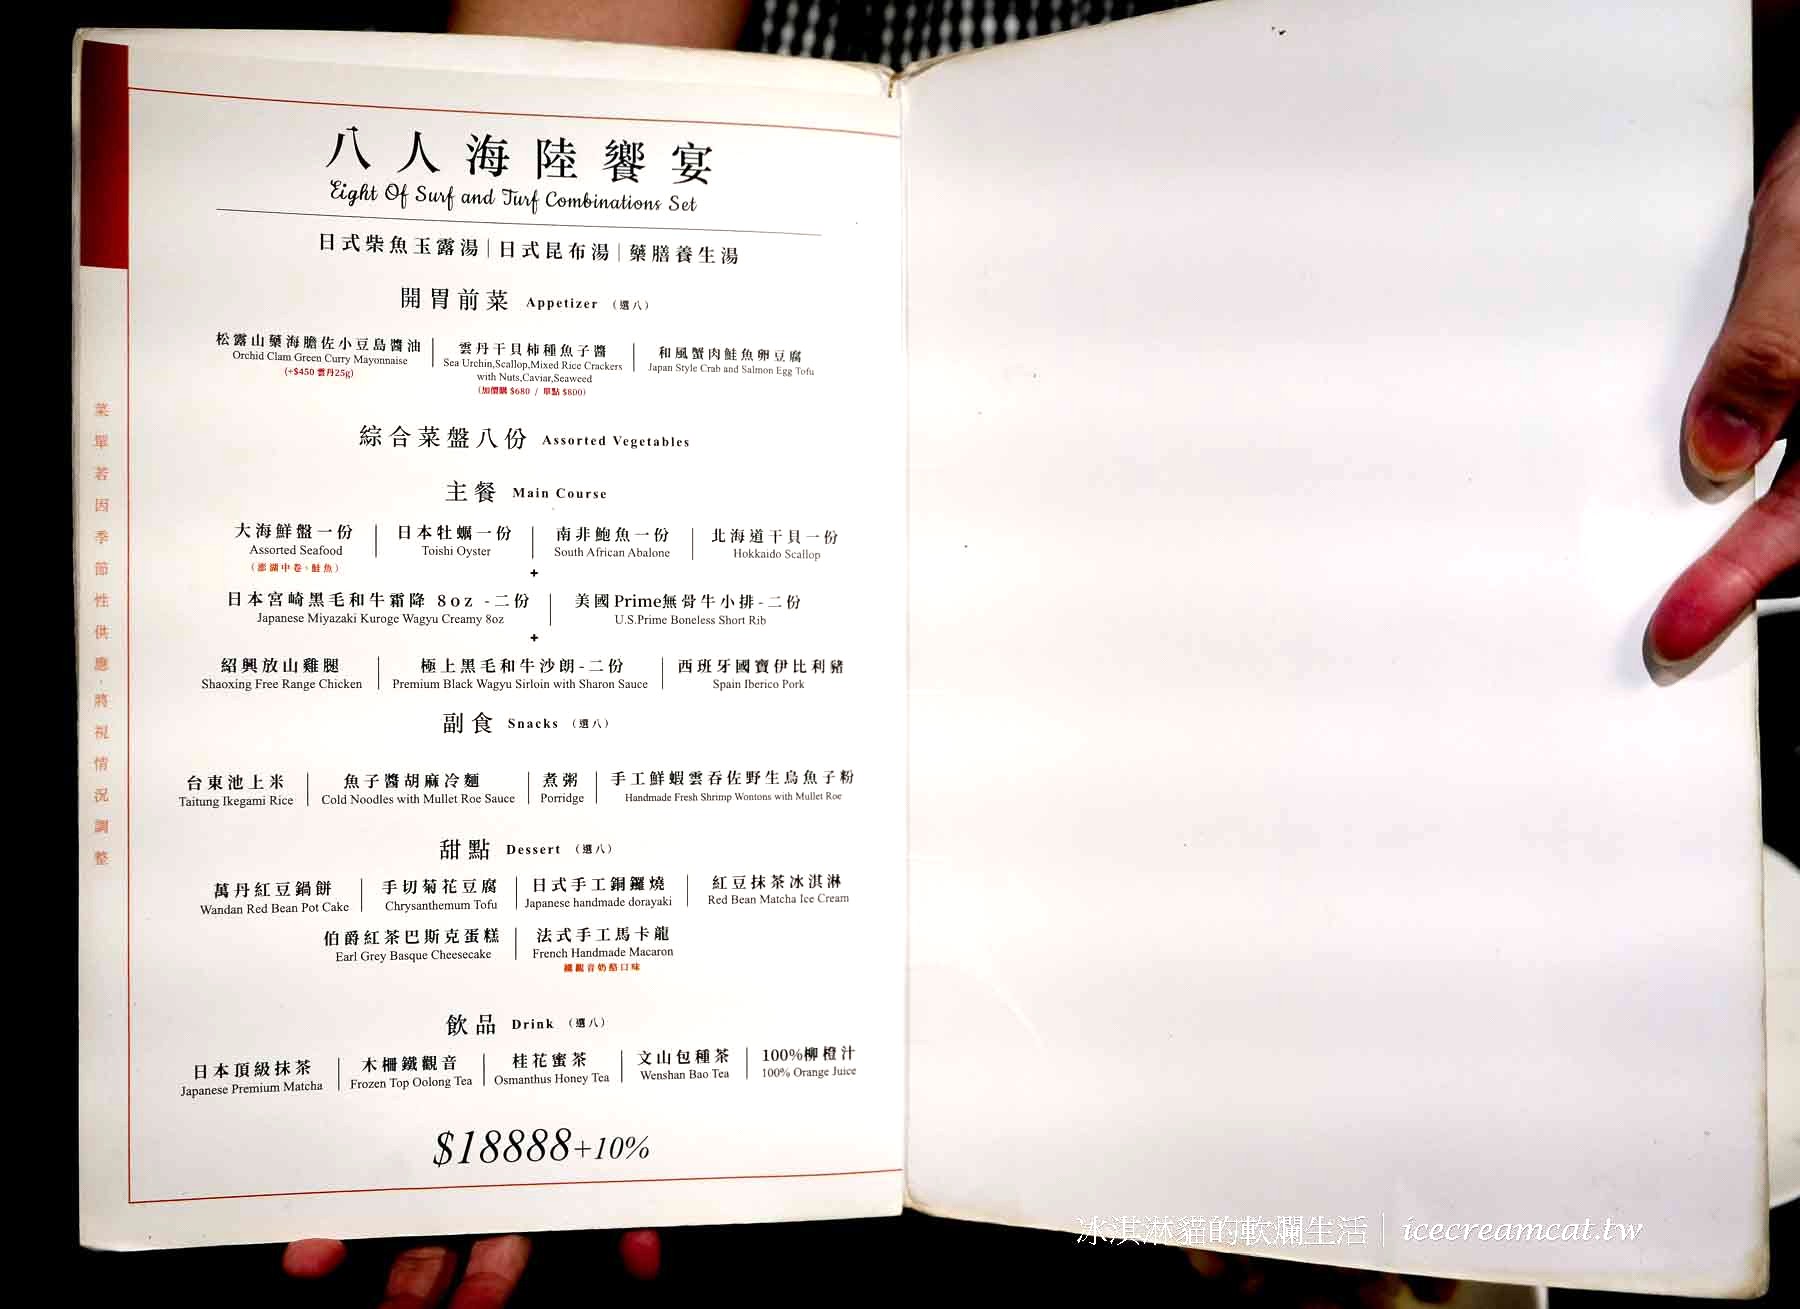 八人海陸饗宴
Eight Of Surf and Turf Combinations Set
日式柴魚玉露湯|日式昆布湯|藥膳養生湯
開胃前菜 Appetizer (選八)
松露山藥海膽佐小豆島醬油
Orchid Clam Green Curry Mayonnaise
(+$450 雲丹25g)
雲丹干貝柿種魚子醬
Sea Urchin,Scallop,Mixed Rice Crackers
with Nuts,Caviar,Seaweed
(加價購 $680 / 單點 $800)
和風蟹肉鮭魚卵豆腐
Japan Style Crab and Salmon Egg Tofu
綜合菜盤八份 Assorted Vegetables
主餐 Main Course
大海鮮盤一份
Assorted Seafood
(澎湖中卷、鮭魚)
日本牡蠣一份
Toishi Oyster
南非鮑魚一份
South African Abalone
北海道干貝一份
Hokkaido Scallop
+
日本宮崎黑毛和牛霜降 8oz -二份
Japanese Miyazaki Kuroge Wagyu Creamy 8oz
美國Prime無骨牛小排-二份
U.S.Prime Boneless Short Rib
+
紹興放山雞腿
Shaoxing Free Range Chicken
極上黑毛和牛沙朗-二份
Premium Black Wagyu Sirloin with Sharon Sauce
西班牙國寶伊比利豬
Spain Iberico Pork
副食 Snacks (選八)
台東池上米
Taitung Ikegami Rice
魚子醬胡麻冷麵
Cold Noodles with Mullet Roe Sauce
煮粥
Porridge
手工鮮蝦雲吞佐野生烏魚子粉
Handmade Fresh Shrimp Wontons with Mullet Roe
甜點 Dessert (選八)
萬丹紅豆鍋餅
Wandan Red Bean Pot Cake
手切菊花豆腐
Chrysanthemum Tofu
日式手工銅鑼燒
Japanese handmade dorayaki
紅豆抹茶冰淇淋
Red Bean Matcha Ice Cream
伯爵紅茶巴斯克蛋糕
Earl Grey Basque Cheesecake
法式手工馬卡龍
French Handmade Macaron
鐵觀音奶酪口味
飲品 Drink (選八)
日本頂級抹茶
Japanese Premium Matcha
木柵鐵觀音
Frozen Top Oolong Tea
桂花蜜茶
Osmanthus Honey Tea
文山包種茶
Wenshan Bao Tea
100%柳橙汁
100% Orange Juice
$18888+10%
菜單若因季節性供應,將視情況調整
冰淇淋貓的軟爛生活|icecreamcat.tw